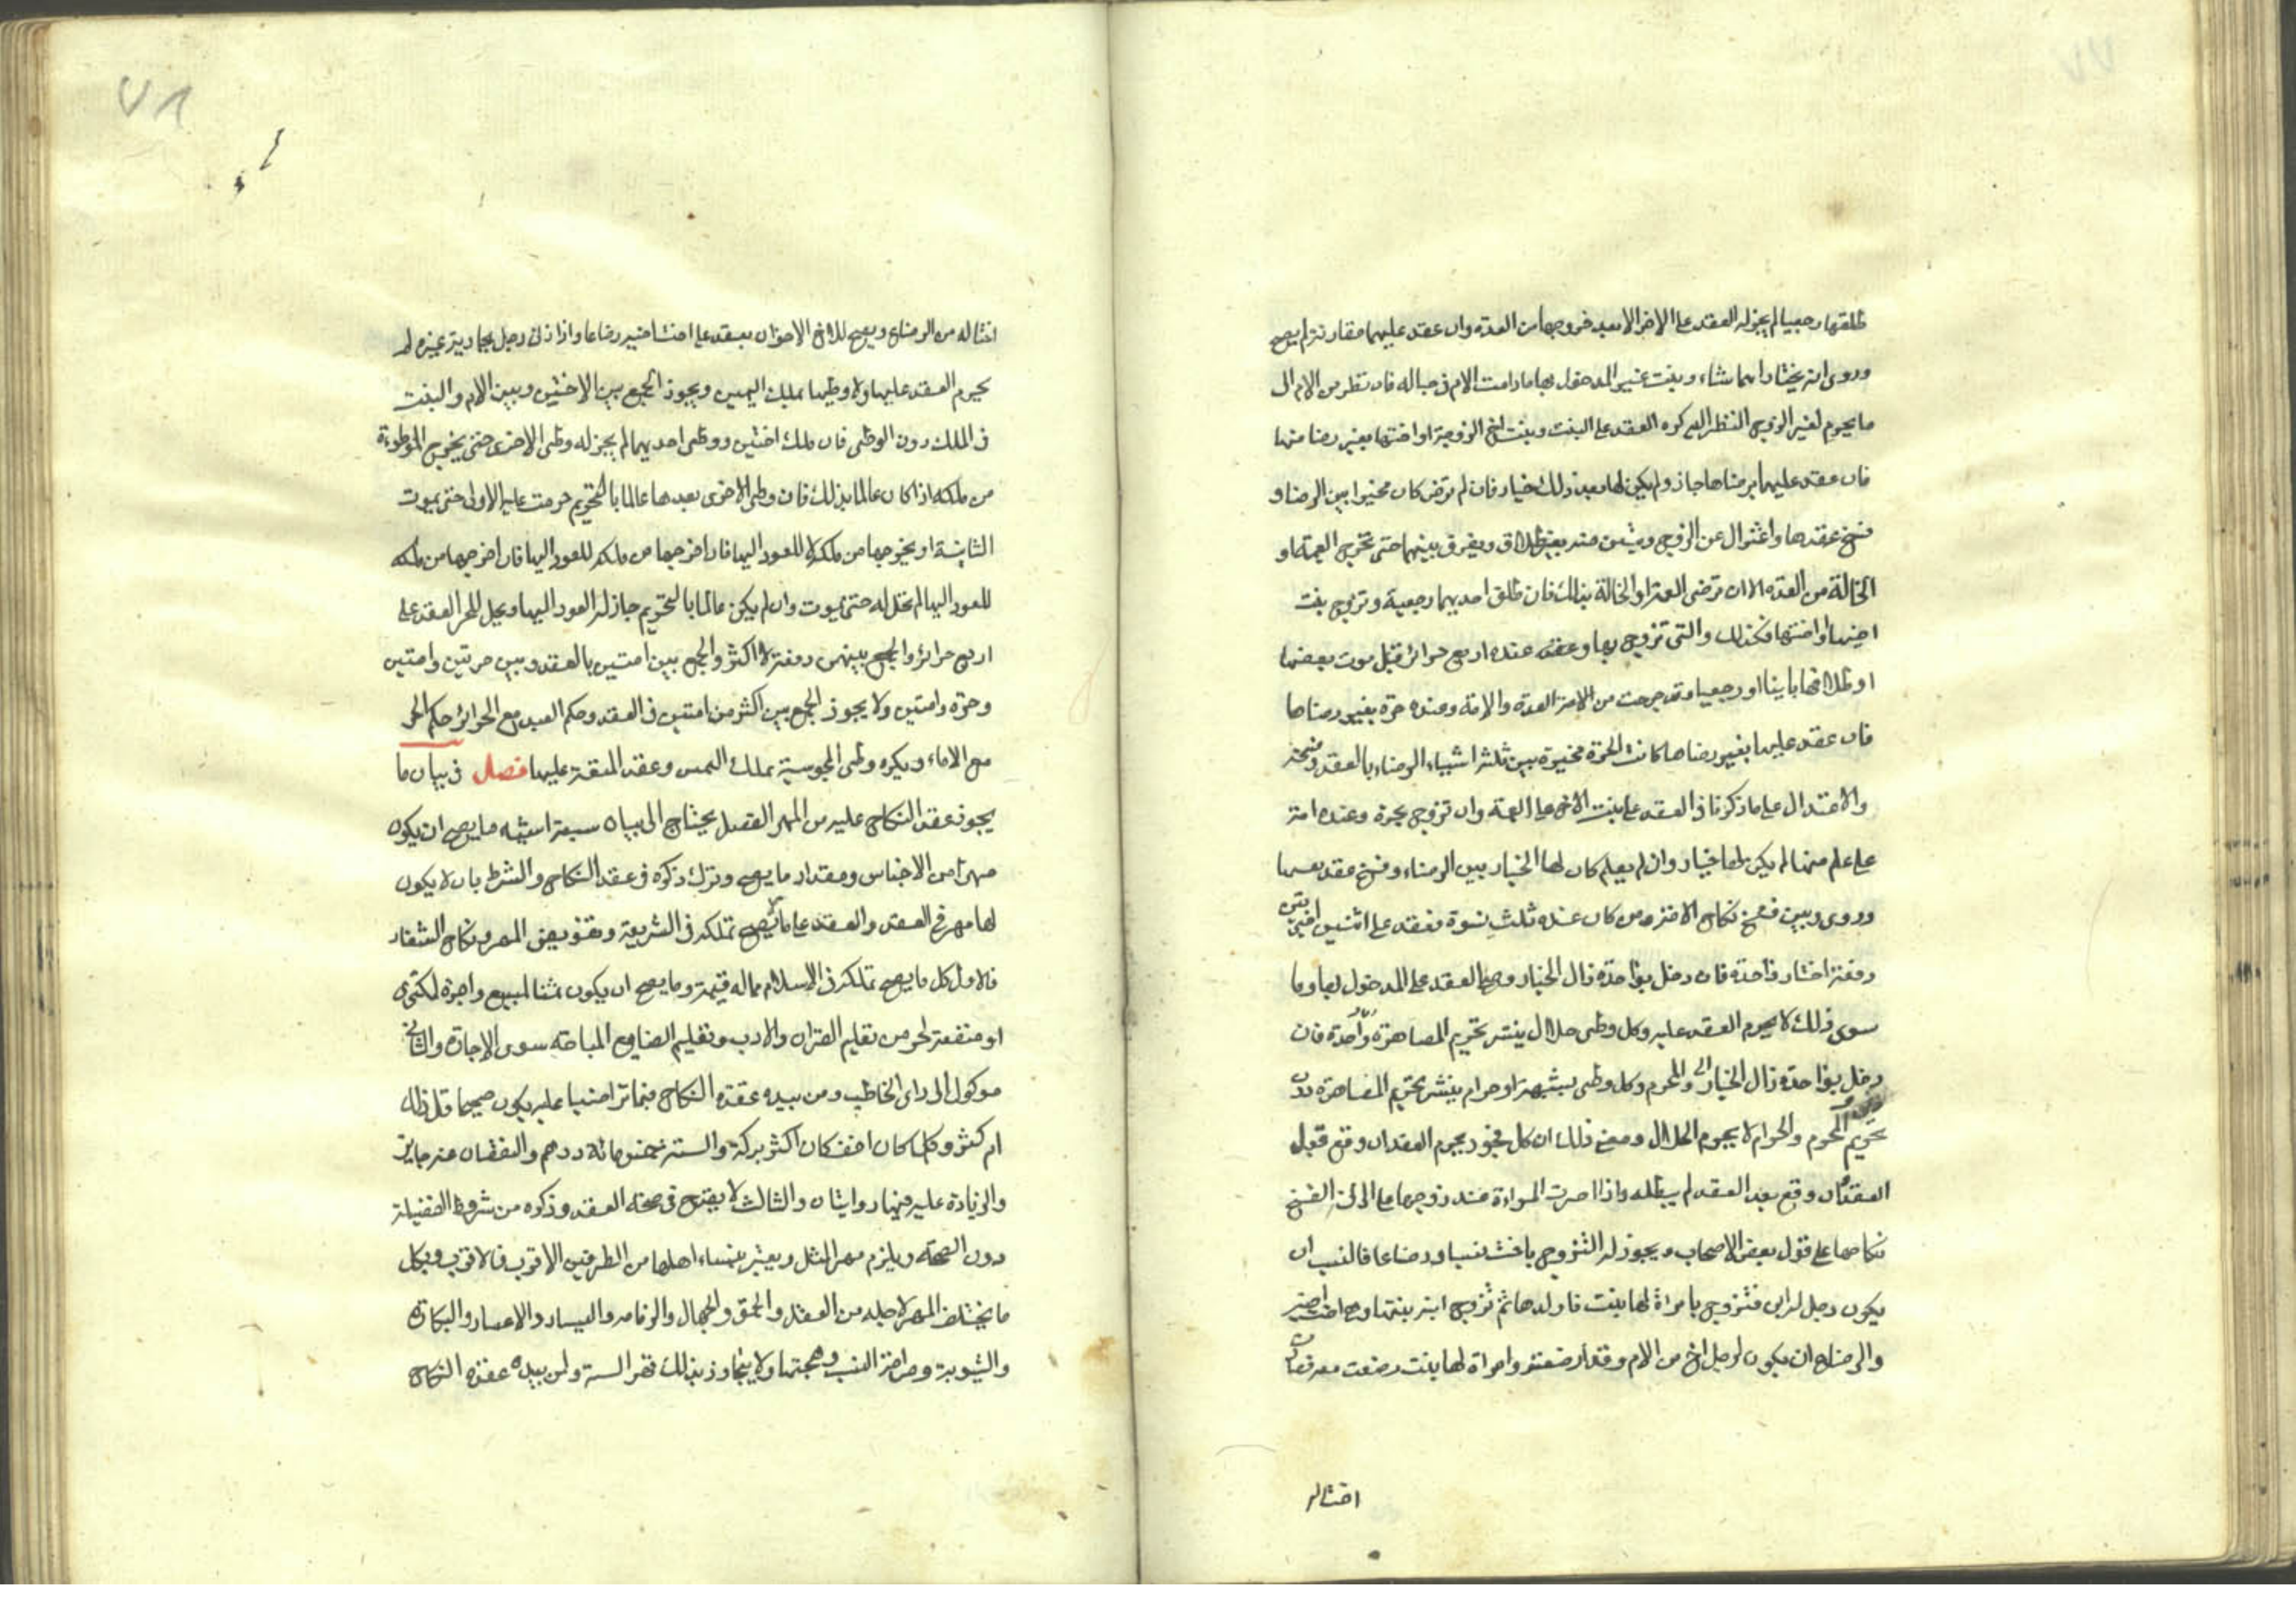 طلقها رجعيا لم يجز له العقد على الاخر الا بعد خروجها من العدة وان عقد عليهما مقارنة لم يصح
وروى انه يختار ايهما شاء وبنت غير المدخول بها مادامت الام في حباله فان نظر من الام الى
ما يحرم لغير الزوج النظر اليه كره العقد على البنت وبنت اخ الزوجة او اختها بغير رضا منها
فان عقد عليهما برضاها جاز ولم يكن لها بعد ذلك خيار فان لم ترض كان مخيرا بين الرضا و
فسخ عقدها واعتزال عن الزوج وتبين منه بغير طلاق ويفرق بينهما حتى تخرج العمة او
الخالة من العدة الا ان ترضى العمة او الخالة بذلك فان طلق احديهما رجعية وتزوج بنت
اخيها او اختها فكذلك والتى تزوج بها وعقد عنده اربع حرائر قبل موت بعضها
او طلاقها باينا او رجعيا وقد خرجت من العدة والامة وعنده حرة بغير رضاها
فان عقد عليها بغير رضاها كانت الحرة مخيرة بين ثلثة اشياء الرضاء بالعقد وفسخه
والاعتزال على ما ذكرنا في العقد على بنت الاخ على العمة وان تزوج بحرة وعنده امة
على علم منها لم يكن لها خيار وان لم يعلم كان لها الخيار بين الرضاء وفسخ عقد نفسها
وروى وبين فسخ نكاح الامة ومن كان عنده ثلث نسوة فعقد على اثنتين اخيرتين
دفعة اختار واحدة فان دخل بواحدة زال الخيار وصح العقد على المدخول بها وما
سوى ذلك لا يحرم العقد عليه وكل وطى حلال ينشر تحريم المصاهرة واحدة فان
دخل بواحدة زال الخيار والمحرم وكل وطى بشبهة او حرام ينشر تحريم المصاهرة دون
تحريم المحرم والحرام لا يحرم الحلال ومعنى ذلك ان كل فجور يحرم العقد ان وقع قبل
العقد فان وقع بعد العقد لم يبطله واذا اصرت المراة عند زوجها على الزنا انفسخ
نكاحها على قول بعض الاصحاب ويجوز له التزوج باخت نسبا ورضاعا فالنسب ان
يكون رجل له ابن فتزوج بامراة لها بنت فاولدها ثم تزوج ابنه بنتها وهي اخت اخيه
والرضاع ان يكون لرجل اخ من الام وقد ارضعته وامراة لها بنت رضعت معه
اختا له
٧٨
اختا له من الرضاع ويصح للاخ الاخر ان يعقد على اخت اخيه رضاعا واذا زنى رجل بجارية غيره لم
يحرم العقد عليها ولا وطيها بملك اليمين ويجوز الجمع بين الاختين وبين الام والبنت
في الملك دون الوطى فان ملك اختين ووطى احديهما لم يجز له وطى الاخرى حتى يخرج الموطوءة
من ملكه اذا كان عالما بذلك فان وطى الاخرى بعدها عالما بالتحريم حرمت عليه الاولى حتى يموت
الثانية او يخرجها من ملكه لا للعود اليها فان اخرجها من ملكه للعود اليها فان اخرجها من ملكه
للعود اليها لم تحل له حتى يموت وان لم يكن عالما بالتحريم جاز له العود اليها ويحل للحر العقد على
اربع حرائر والجمع بينهن دفعة لا اكثر والجمع بين امتين بالعقد وبين حرتين وامتين
وحرة وامتين ولا يجوز الجمع بين اكثر من امتين في العقد وحكم العبد مع الحرائر حكم الحر
مع الاماء ويكره وطى المجوسية بملك اليمين وعقد المتعة عليها فصل في بيان ما
يجوز عقد النكاح عليه من المهر الفصل يحتاج الى بيان سبعة اشياء ما يصح ان يكون
مهرا من الاجناس ومقدار ما يصح وترك ذكره في عقد النكاح والشرط بان لا يكون
لها مهر في العقد والعقد على ما لا يصح تملكه في الشريعة وتفويض المهر ونكاح الشغار
فالاول كل ما يصح تملكه في الاسلام مما له قيمة وما يصح ان يكون ثمنا لمبيع واجرة لمكترى
او منفعة لحر من تعليم القران والادب وتعليم الصنايع المباحة سوى الاجارة والثانى
موكول الى راى الخاطب ومن بيده عقدة النكاح فبما تراضيا عليه يكون صحيحا قل ذلك
ام كثر وكلما كان اخف كان اكثر بركة والسنة خمسمائة درهم والنقصان عنه جايز
والزيادة عليه فيها روايتان والثالث لا يقدح في صحة العقد وذكره من شروط الفضيلة
دون الصحة ويلزم مهر المثل ويعتبر بنساء اهلها من الطرفين الاقرب فالاقرب وبكل
ما يختلف المهر لاجله من العقل والحمق والجمال والرفامه واليسار والاعسار والبكارة
والثيوبة وصراحة النسب وهجنتها ولا يتجاوز بذلك مهر السنة ولمن بيده عقدة النكاح